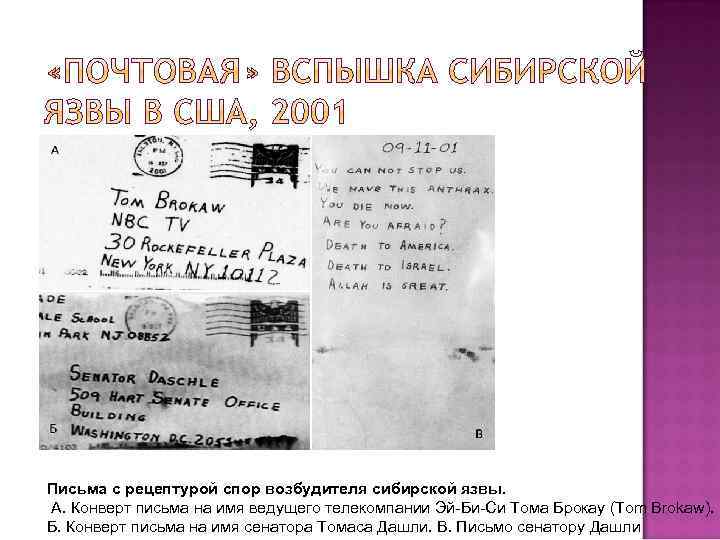 «ПОЧТОВАЯ» ВСПЫШКА СИБИРСКОЙ
ЯЗВЫ В США, 2001
А
PM
2001
34
TOM BROKAW
NBC TV
30 ROCKEFELLER PLAZA
NEW YORK NY 10112
09-11-01
YOU CAN NOT STOP US.
WE HAVE THIS ANTHRAX.
YOU DIE NOW.
ARE YOU AFRAID?
DEATH TO AMERICA.
DEATH TO ISRAEL.
ALLAH IS GREAT.
ADE
ALE SCHOOL
IN PARK NJ 08852
SENATOR DASCHLE
509 HART SENATE OFFICE
BUILDING
WASHINGTON D.C. 205
Б
В
Письма с рецептурой спор возбудителя сибирской язвы.
А. Конверт письма на имя ведущего телекомпании Эй-Би-Си Тома Брокау (Tom Brokaw).
Б. Конверт письма на имя сенатора Томаса Дашли. В. Письмо сенатору Дашли